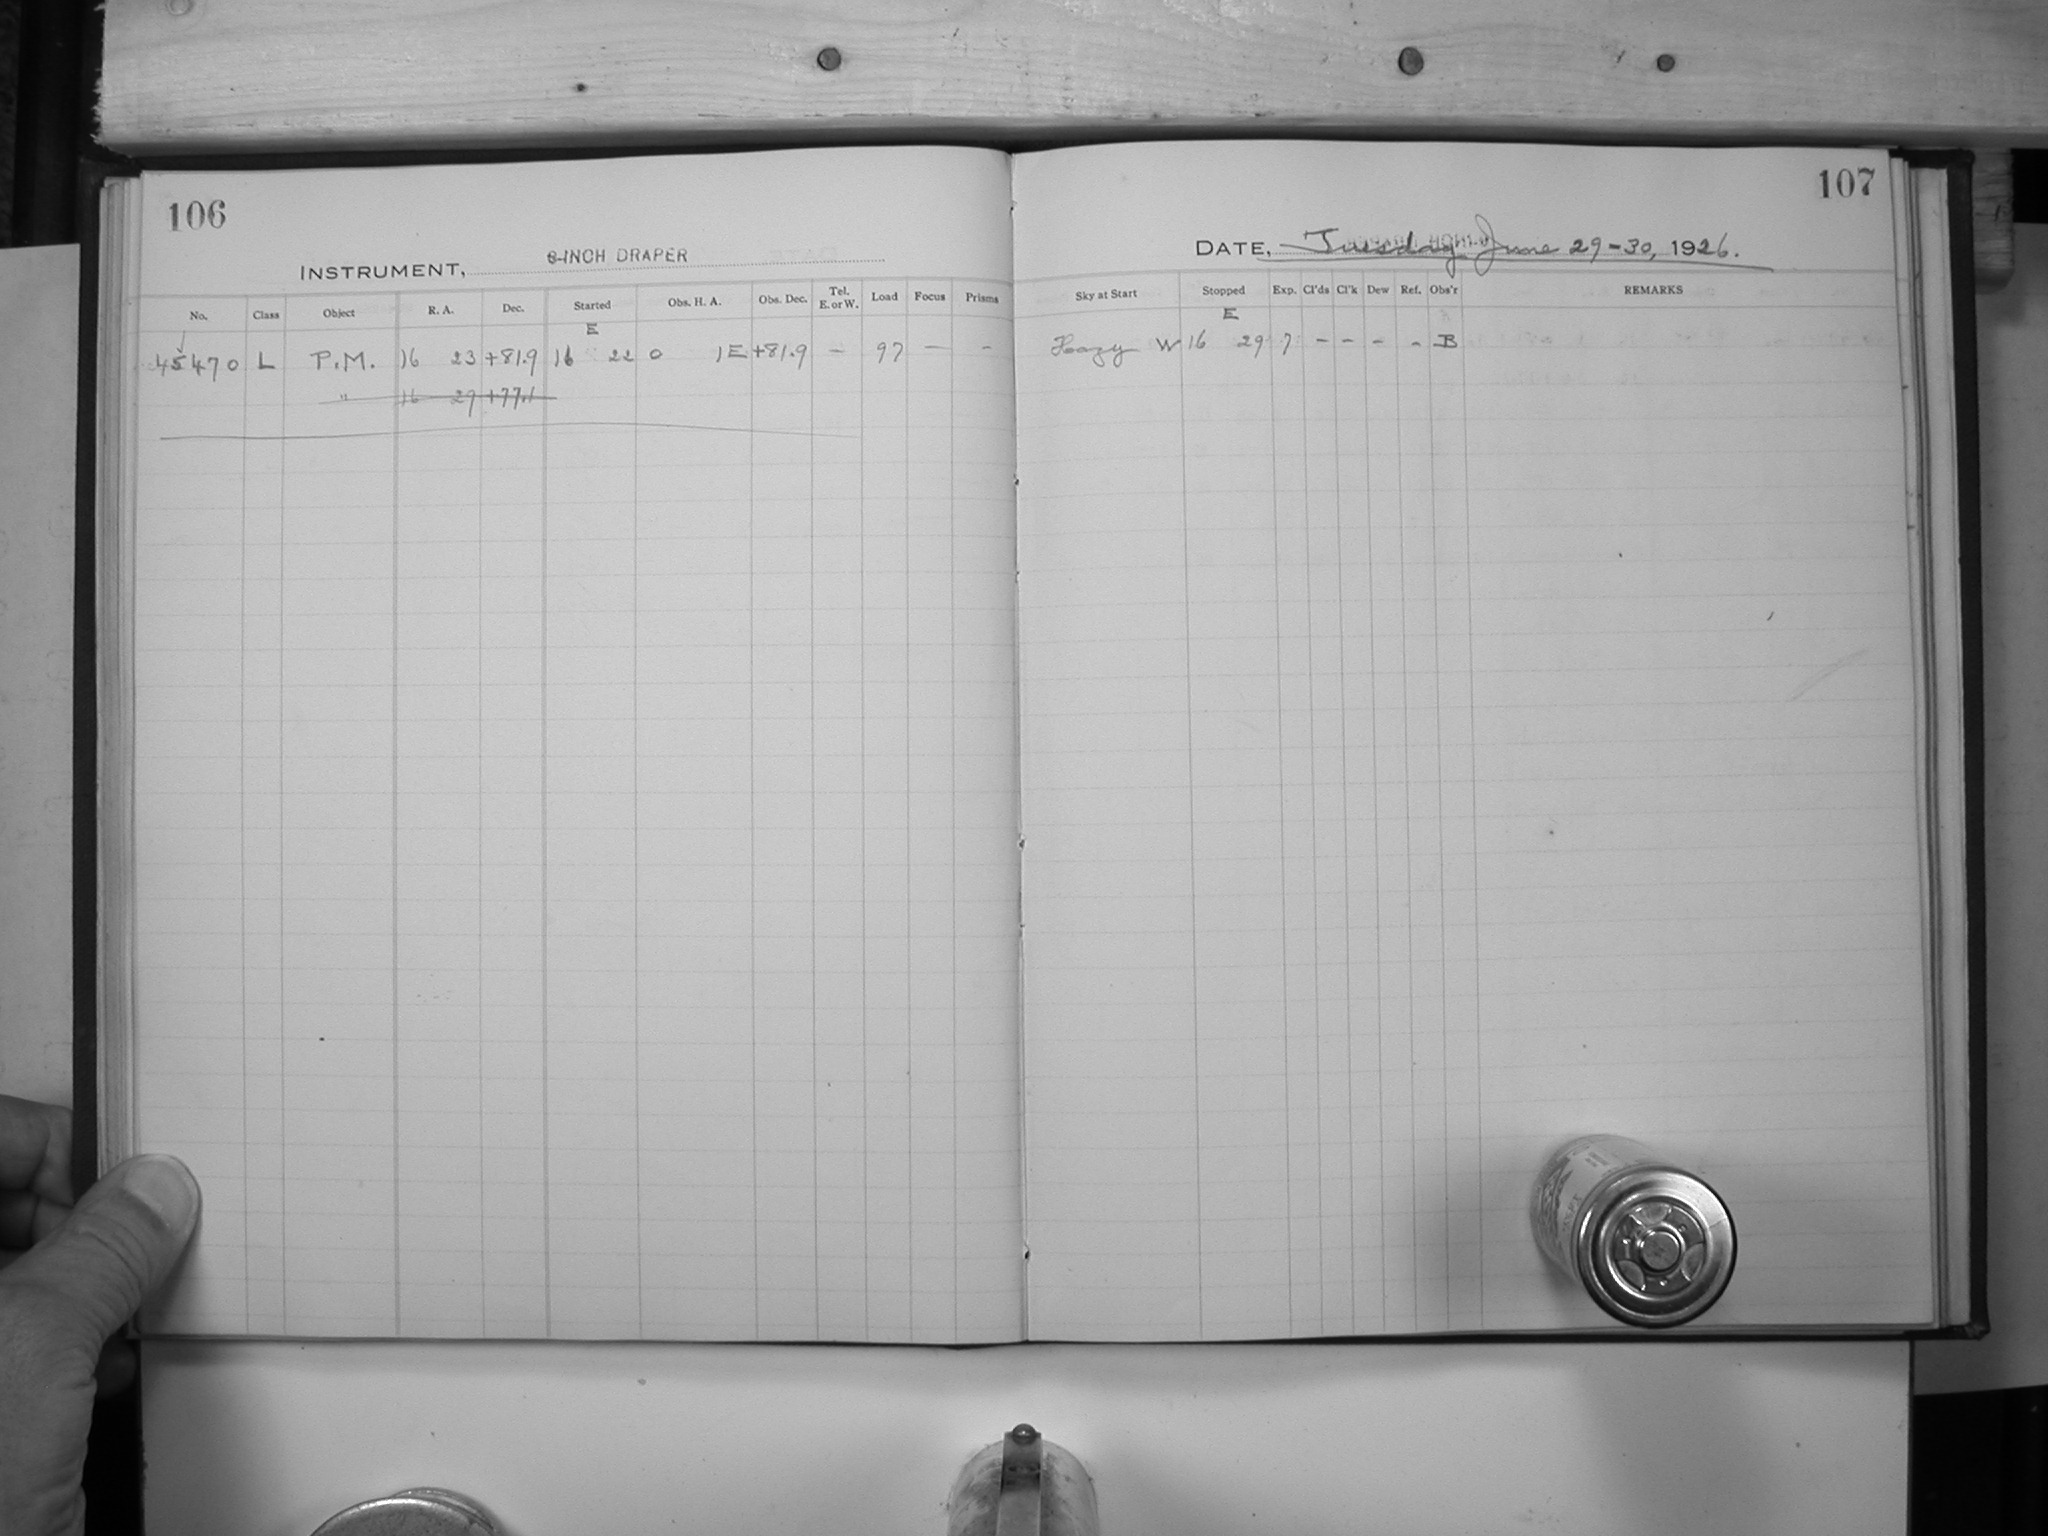 106
INSTRUMENT, 8-INCH DRAPER
No. Class Object R. A. Dec. Started Obs. H. A. Obs. Dec. Tel. E. or W. Load Focus Prisms
E
45470 L P.M. 16 23 +81.9 16 22 0 1E +81.9 — 97 — -
" 16 29 +77.1
107
DATE, Tuesday June 29-30, 1926.
Sky at Start Stopped Exp. Cl'ds Cl'k Dew Ref. Obs'r REMARKS
E
Hazy W 16 29 7 - - - - B